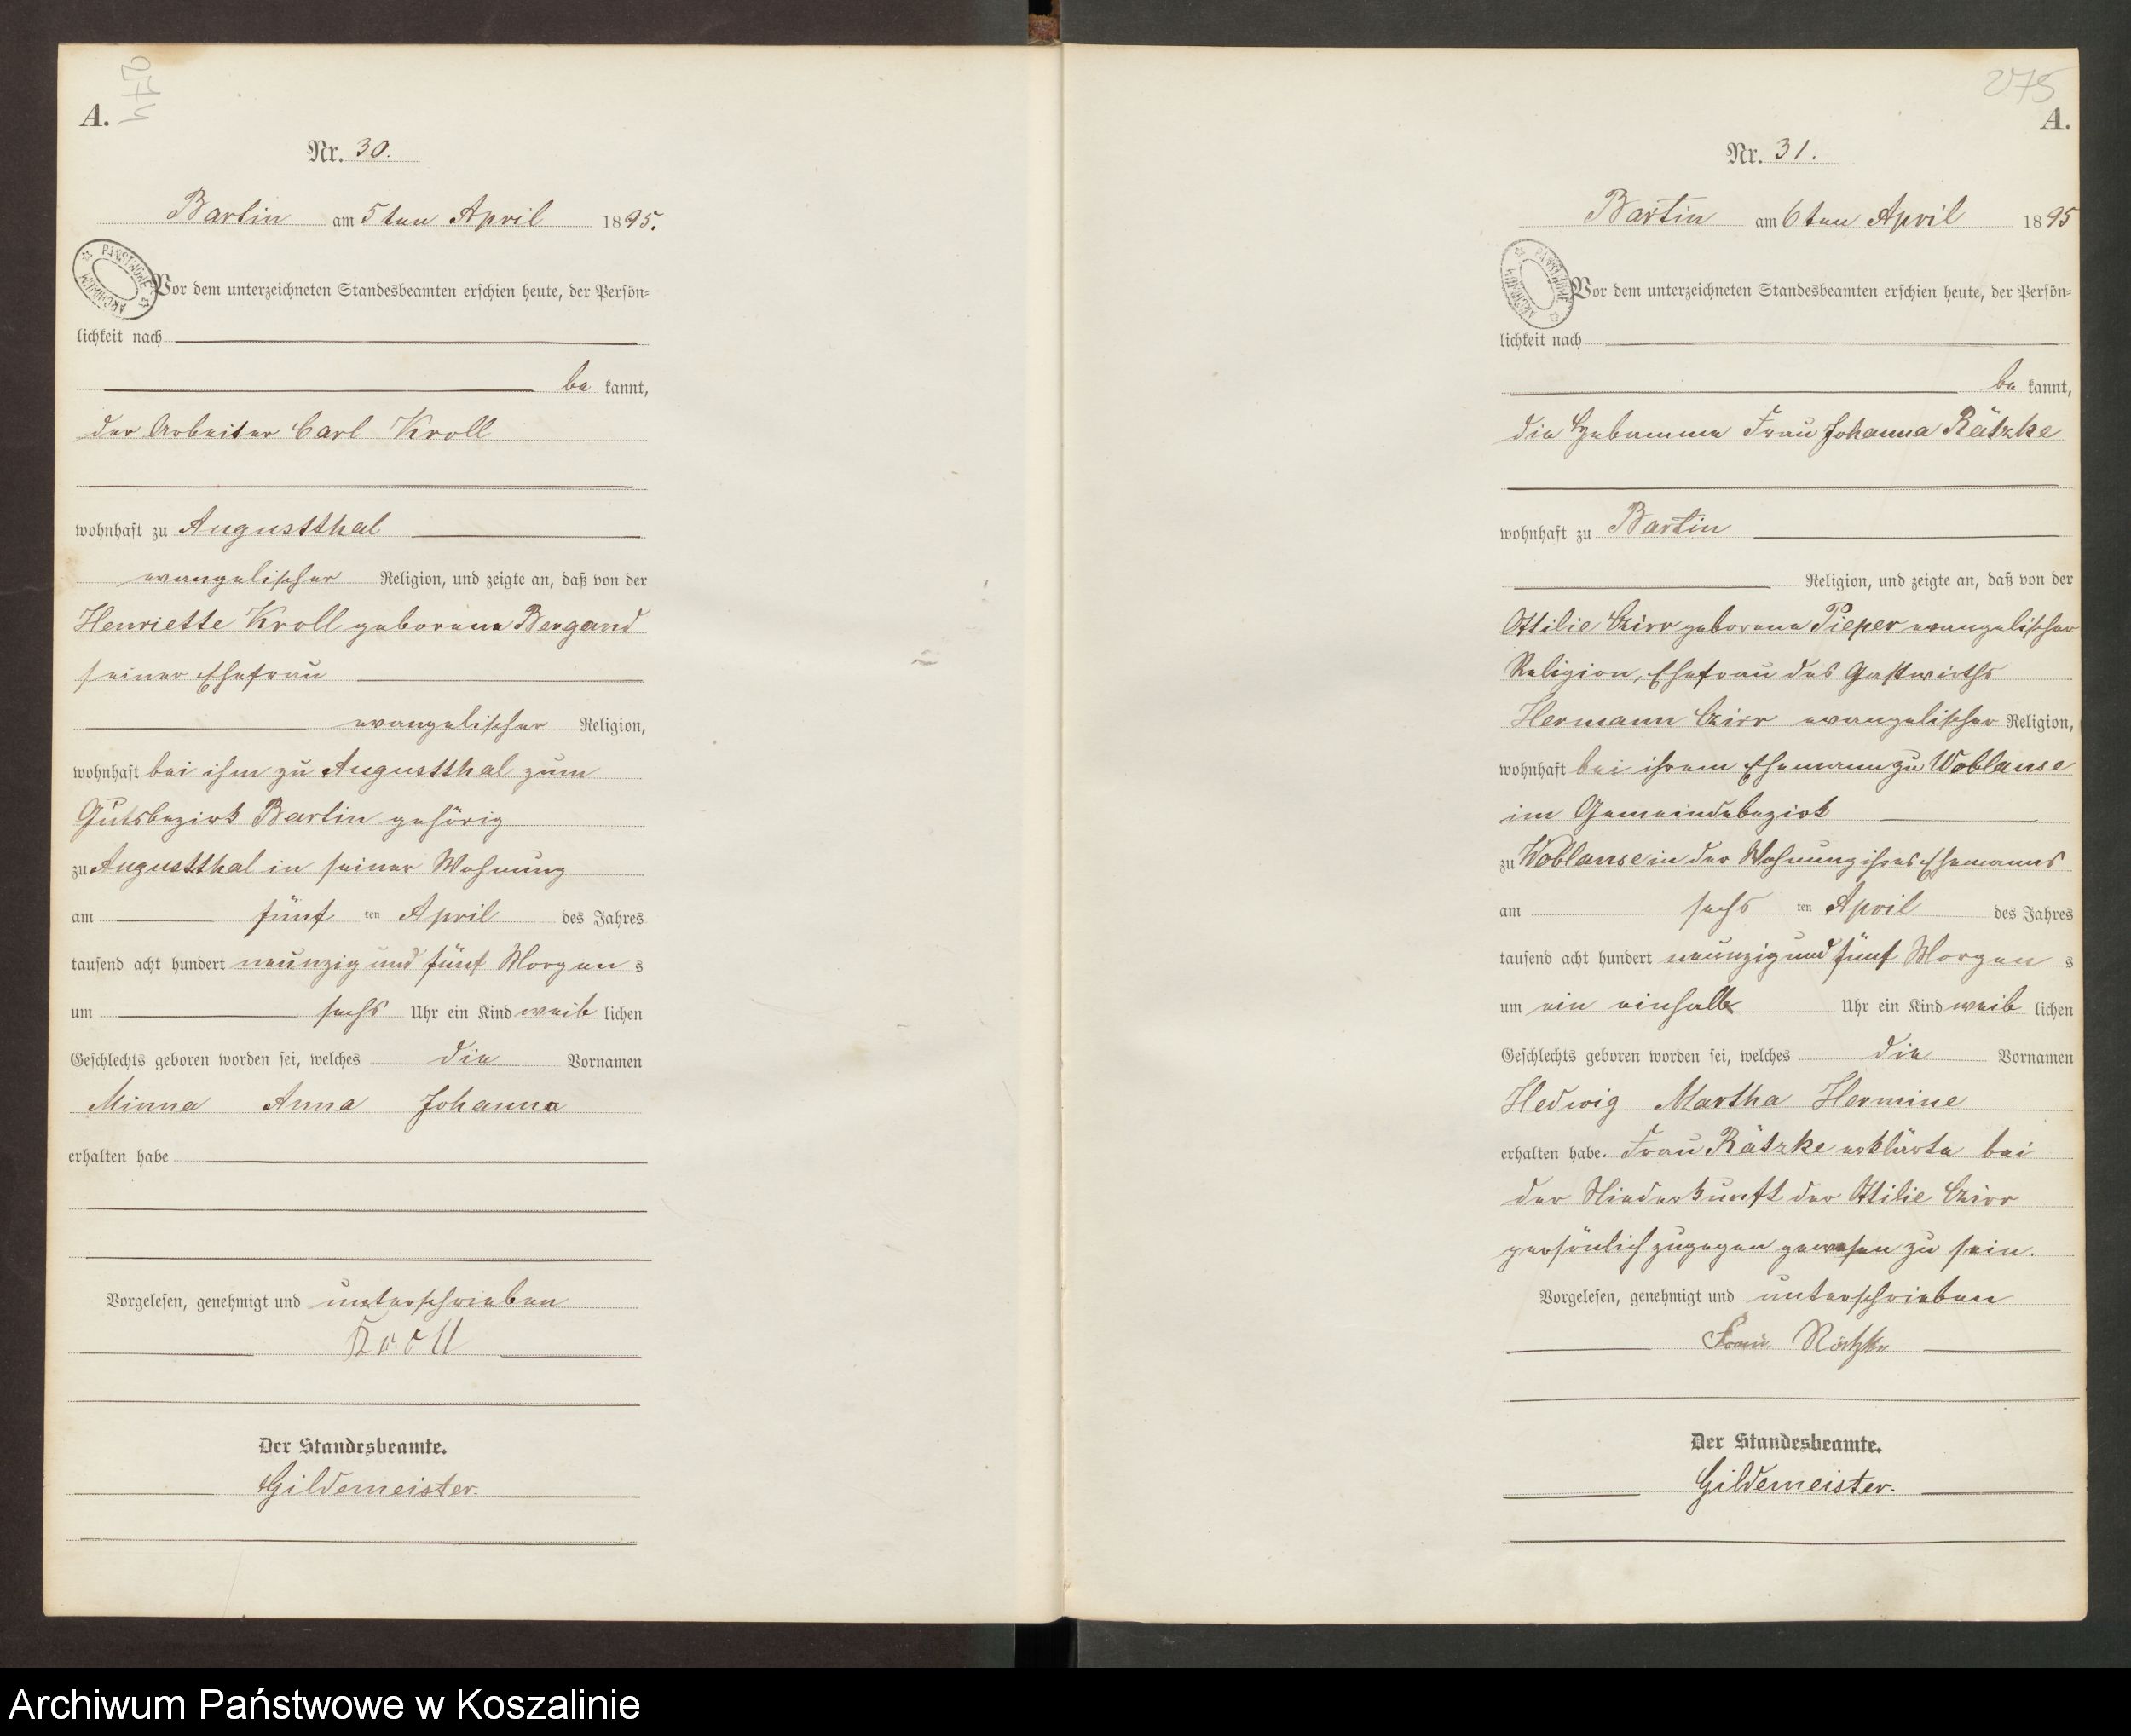 274
A.
Nr. 30.
Bartin am 5ten April 1895.
PAŃSTWOWE ARCHIWUM
Vor dem unterzeichneten Standesbeamten erschien heute, der Persön-
lichkeit nach
be kannt,
der Arbeiter Carl Kroll
wohnhaft zu Augustthal
evangelischer Religion, und zeigte an, daß von der
Henriette Kroll geborene Bergand
seiner Ehefrau
evangelischer Religion,
wohnhaft bei ihm zu Augustthal zum
Gutsbezirk Bartin gehörig
zu Augustthal in seiner Wohnung
am fünf ten April des Jahres
tausend acht hundert neunzig und fünf Morgen s
um sechs Uhr ein Kind weib lichen
Geschlechts geboren worden sei, welches die Vornamen
Minna Anna Johanna
erhalten habe
Vorgelesen, genehmigt und unterschrieben
Kroll
Der Standesbeamte.
Gildemeister.
275
A.
Nr. 31.
Bartin am 6ten April 1895
PAŃSTWOWE ARCHIWUM
Vor dem unterzeichneten Standesbeamten erschien heute, der Persön-
lichkeit nach
be kannt,
die Hebamme Frau Johanna Rätzke
wohnhaft zu Bartin
Religion, und zeigte an, daß von der
Ottilie Czirr geborene Pieper evangelischer
Religion, Ehefrau des Gastwirths
Hermann Czirr evangelischer Religion,
wohnhaft bei ihrem Ehemann zu Woblanse
im Gemeindebezirk
zu Woblanse in der Wohnung ihres Ehemanns
am sechs ten April des Jahres
tausend acht hundert neunzig und fünf Morgen s
um ein einhalb Uhr ein Kind weib lichen
Geschlechts geboren worden sei, welches die Vornamen
Hedwig Martha Hermine
erhalten habe. Frau Rätzke erklärte bei
der Niederkunft der Ottilie Czirr
persönlich zugegen gewesen zu sein.
Vorgelesen, genehmigt und unterschrieben
Frau Rätzke
Der Standesbeamte.
Gildemeister.
Archiwum Państwowe w Koszalinie